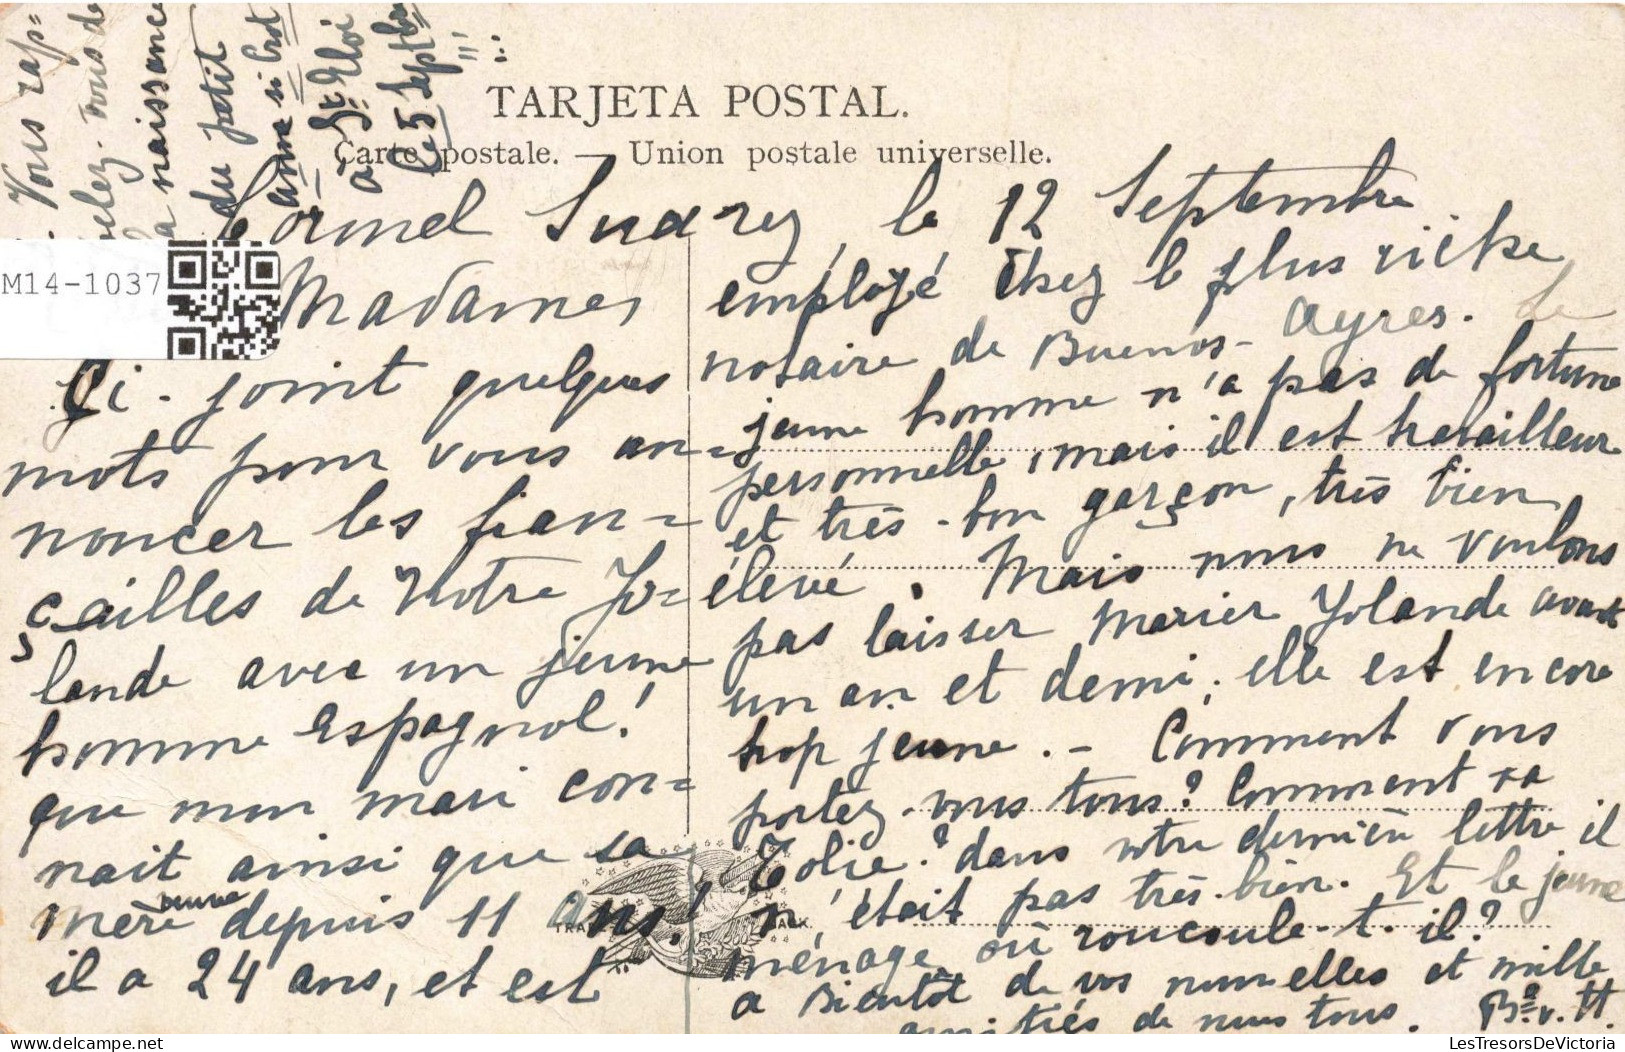 TARJETA POSTAL.
Carte postale. — Union postale universelle.
Vous rap=
pelez-vous de
la naissance
du petit
à St Eloi
le 5 Septbre
M14-1037
Cormel Suarez, le 12 Septembre
Madame,
Ci-joint quelques
mots pour vous an-
noncer les fian=
çailles de notre Yo=
lande avec un jeune
homme Espagnol!
que mon mari con=
nait ainsi que sa
mère depuis 11 ans!
il a 24 ans, et est
employé chez le plus riche
notaire de Buenos-Ayres. Le
jeune homme n'a pas de fortune
personnelle, mais il est travailleur
et très-bon garçon, très bien
élevé. Mais nous ne voulons
pas laisser marier Yolande avant
un an et demi; elle est encore
trop jeune. - Comment vous
portez-vous tous? Comment va
dans votre dernière lettre il
n'était pas très-bien. Et le jeune
ménage où roucoule-t-il?
a Bientôt de vos nouvelles et mille
amitiés de nous tous. Bne v. H.
TRA MARK
LesTresorsDeVictoria
delcampe.net